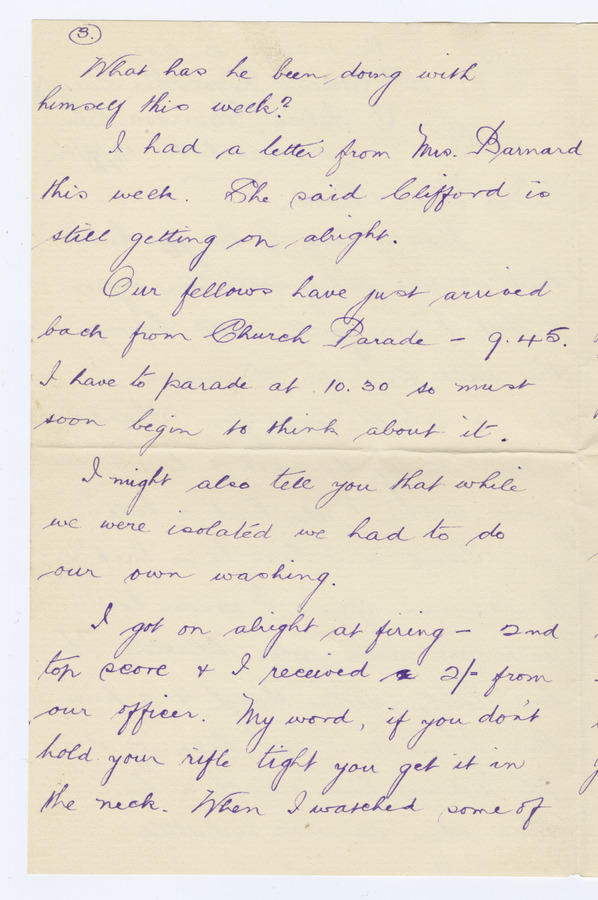 3.
What has he been doing with
himself this week?
I had a letter from Mrs. Barnard
this week. She said Clifford is
still getting on alright.
Our fellows have just arrived
back from Church Parade - 9.45.
I have to parade at 10.30 so must
soon begin to think about it.
I might also tell you that while
we were isolated we had to do
our own washing.
I got on alright at firing - 2nd
top score & I received 2/- from
our officer. My word, if you don't
hold your rifle tight you get it in
the neck. When I watched some of